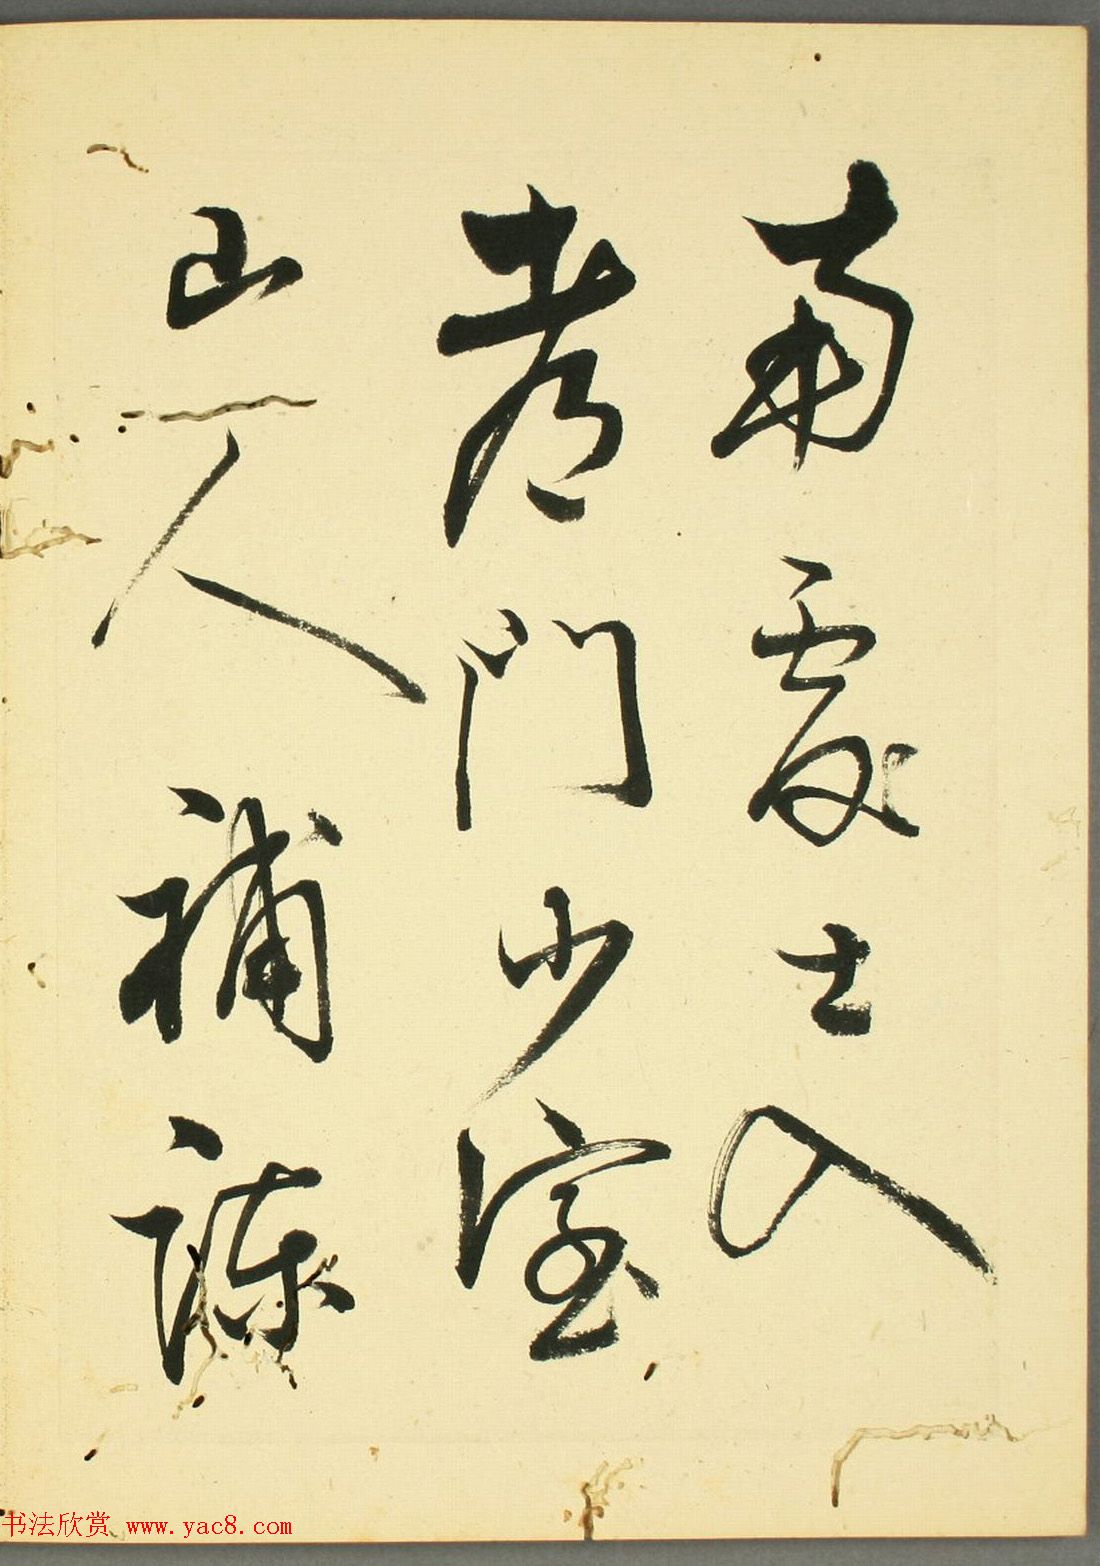 南處士入
都門少室
山人補諫
书法欣赏 www.yac8.com